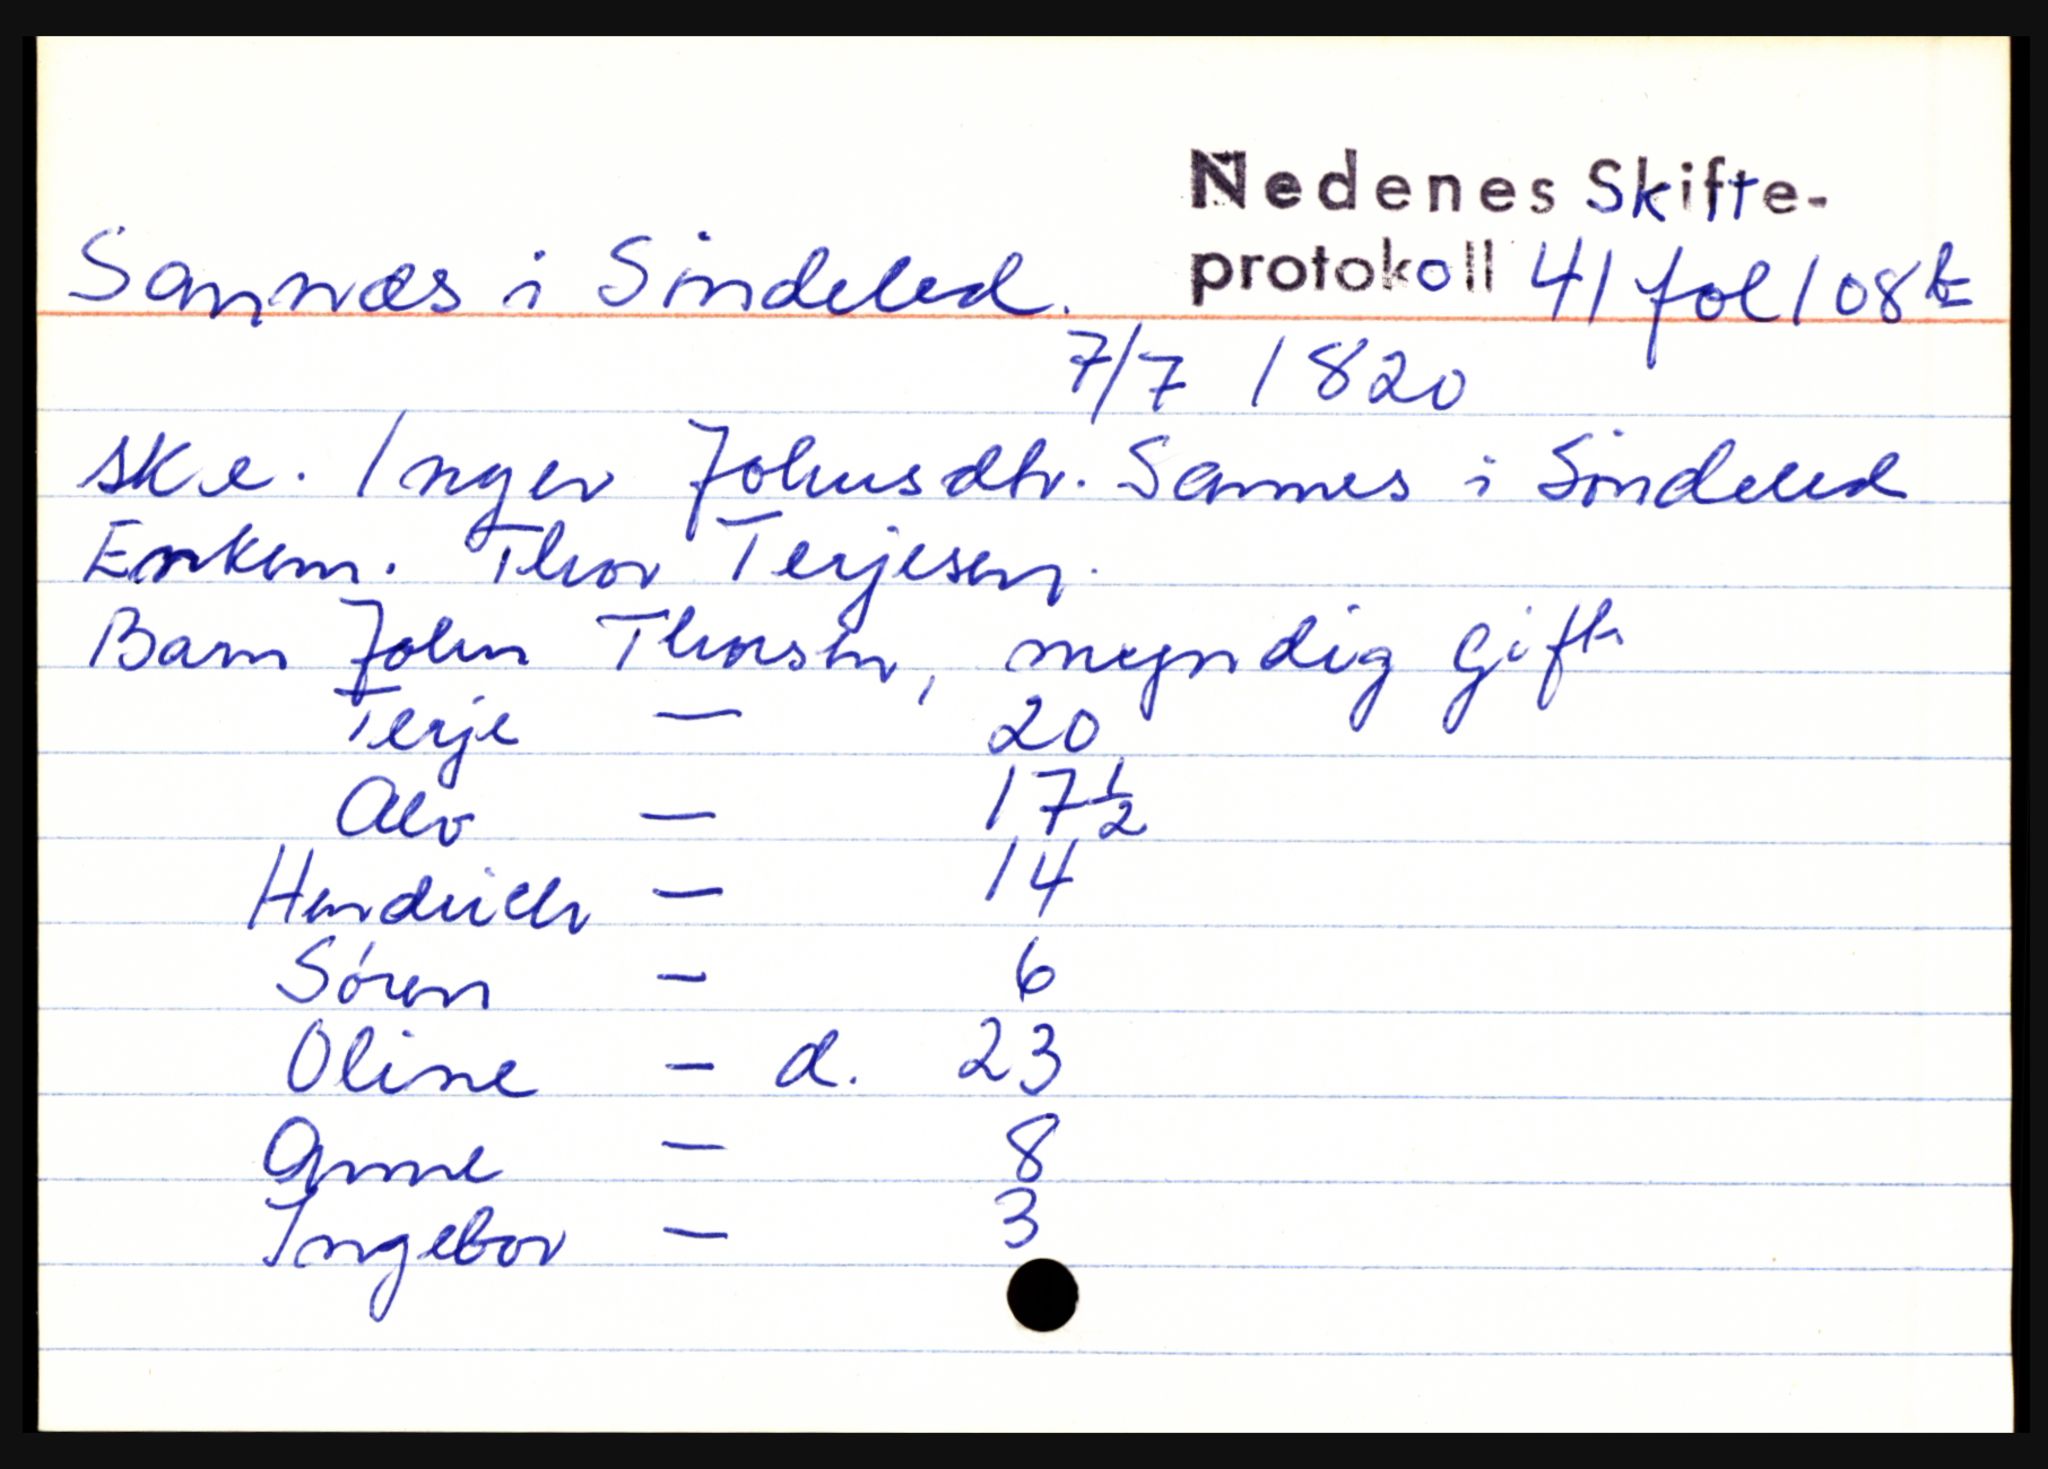 Nedenes Skifte-
Sannæs i Sindeled. protokoll 41 fol 108 b
7/7 1820
sk e. Inger Johnsdtr. Sannes i Sindeled
Enkem. Thor Terjesen.
Barn John Thorsen, myndig gift
Terje — 20
Alv — 17 1/2
Hendrich — 14
Sören — 6
Oline — d. 23
Anne — 8
Ingebor — 3